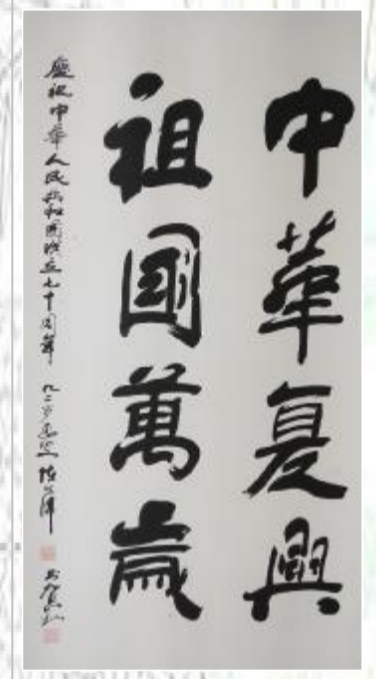 中華复興
祖國萬歲
慶祝中华人民共和國成立七十周年 九二岁